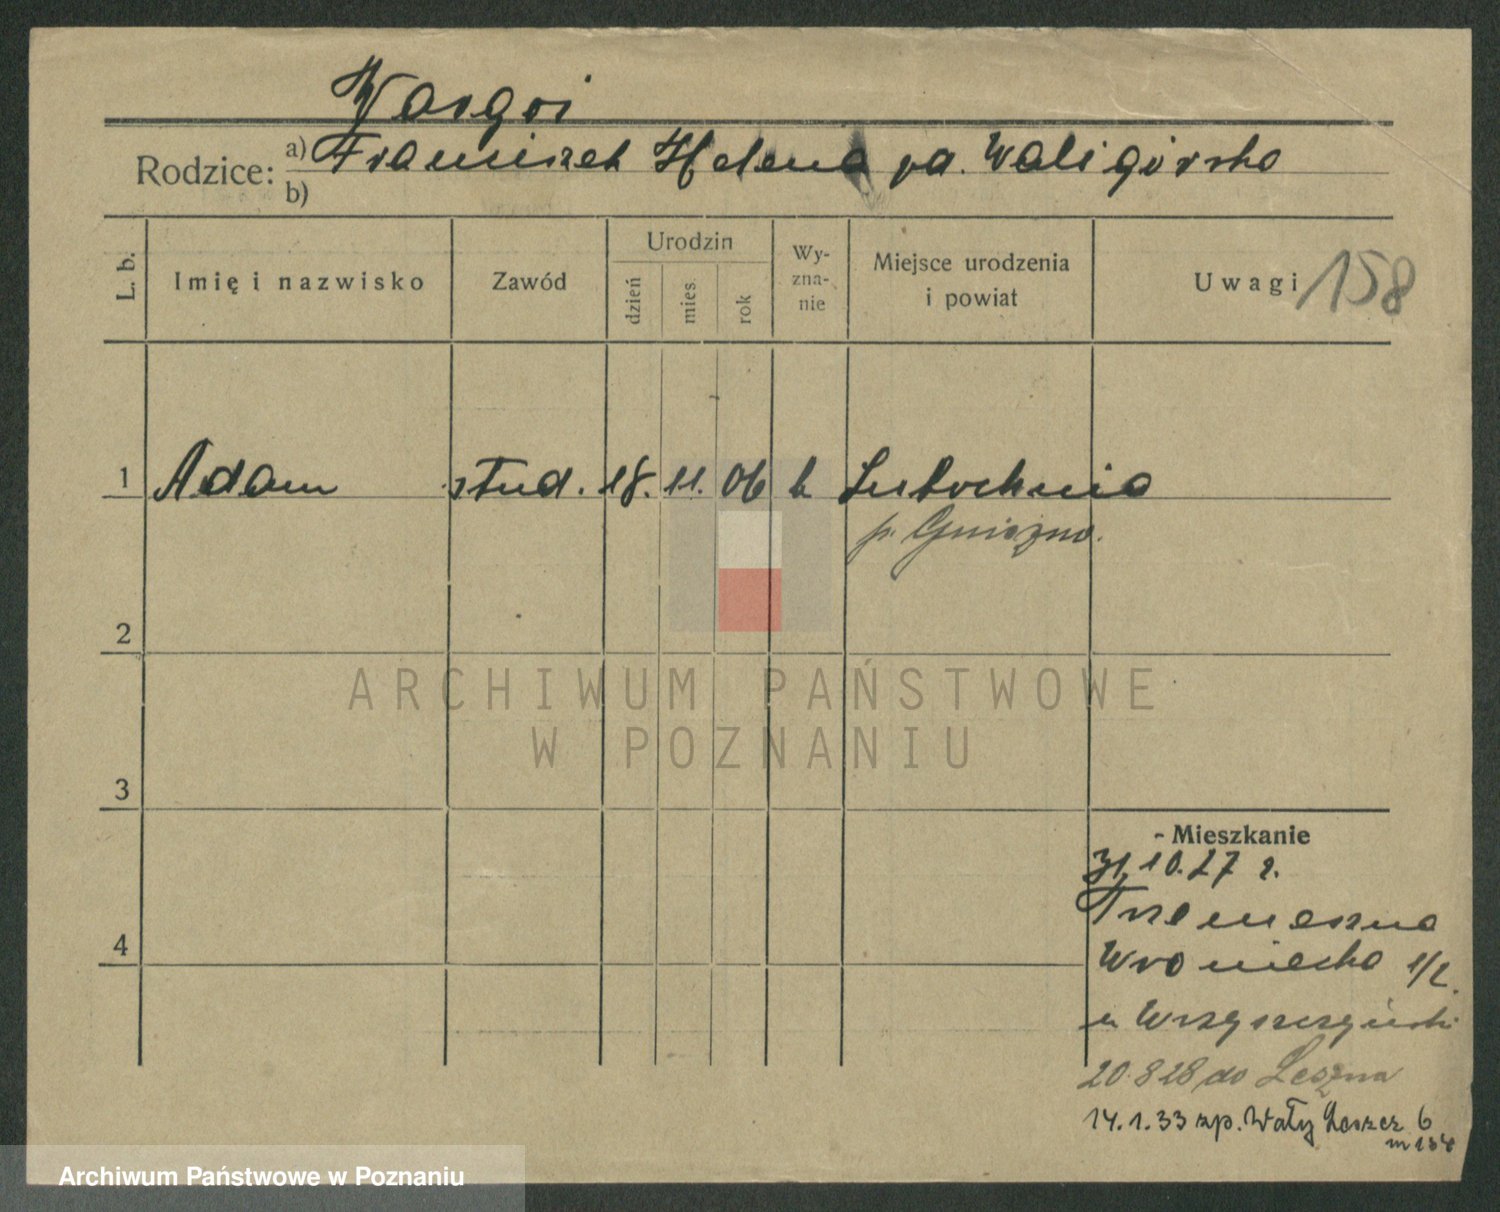 Wargoi
Rodzice: a) Franciszek Helena pa. Waligórska
b)
L. b. Imię i nazwisko Zawód Urodzin dzień mies. rok Wy-zna-nie Miejsce urodzenia i powiat Uwagi 158
1 Adam stud. 18. 11. 06 k
p. Gniezno.
2
ARCHIWUM PAŃSTWOWE
W POZNANIU
3
- Mieszkanie
31.10.27 r.
Trzemeszna
Wroniecka 1/2.
20.8 28 do Leszna
14.1.33 zp. Wały Leszcz 6
m 134
4
Archiwum Państwowe w Poznaniu